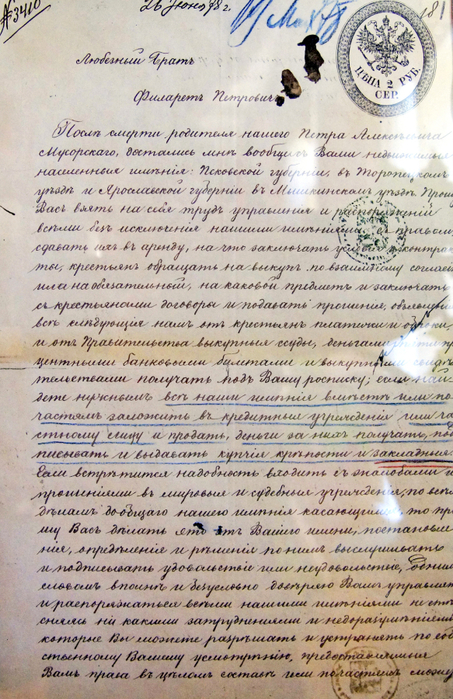 № 3410
26 Іюня 78 г.
181
ЦѢНА 2 РУБ.
СЕР.
Любезный Братъ
Филаретъ Петровичъ
Послѣ смерти родителя нашего Петра Алексѣевича
Мусорскаго, достались мнѣ вообще съ Вами недвижимыя
населенныя имѣнія: Псковской губерніи, въ Торопецкомъ
уѣздѣ и Ярославской губерніи въ Мышкинскомъ уѣздѣ. Прошу
Васъ взять на себя трудъ управленія и распоряженій
всѣми безъ исключенія нашими имѣніями съ правомъ
сдавать ихъ въ аренду, на что заключать контрак
ты, крестьянъ обращать на выкупъ по взаимному соглаше
или на обязательный, на каковой предметъ и заключать
съ крестьянами договоры и подавать прошенія,
всѣ слѣдующія намъ отъ крестьянъ платежи и оброки,
и отъ Правительства выкупныя ссуды, деньгами
центными банковыми билетами и выкупными свидѣ
тельствами получать подъ Вашу росписку; если най
дете нужнымъ всѣ наши имѣнія вмѣстѣ или по
частямъ заложить въ кредитныя учрежденія или ча
стному лицу и продать, деньги за нихъ получать, под
писывать и выдавать купчія крѣпости и закладныя.
Если встрѣтится надобность входить съ жалобами и
прошеніями въ мировыя и судебныя учрежденія, по всѣмъ
дѣламъ до общаго нашего имѣнія касающимся, то про
шу Васъ дѣлать это отъ Вашего имени, постановле
нія, опредѣленія и рѣшенія по нимъ выслушивать
и подписывать удовольствіе или неудовольствіе, однимъ
словомъ вполнѣ и безусловно довѣряю Вамъ управлять
и распоряжаться всѣми нашими имѣніями не стѣ
сняясь ни какими затрудненіями и недоразумѣніями
которые Вы можете разрѣшать и устранять по соб
ственному Вашему усмотрѣнію, предоставляя
Вамъ права въ цѣломъ составѣ или по частямъ